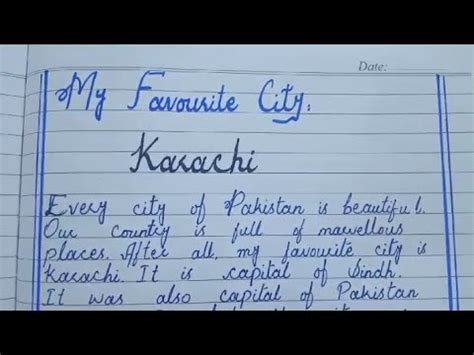 Date:
My Favourite City.
Karachi
Every city of Pakistan is beautiful.
Our country is full of marvellous
places. After all, my favourite city is
Karachi. It is capital of Sindh.
It was also capital of Pakistan